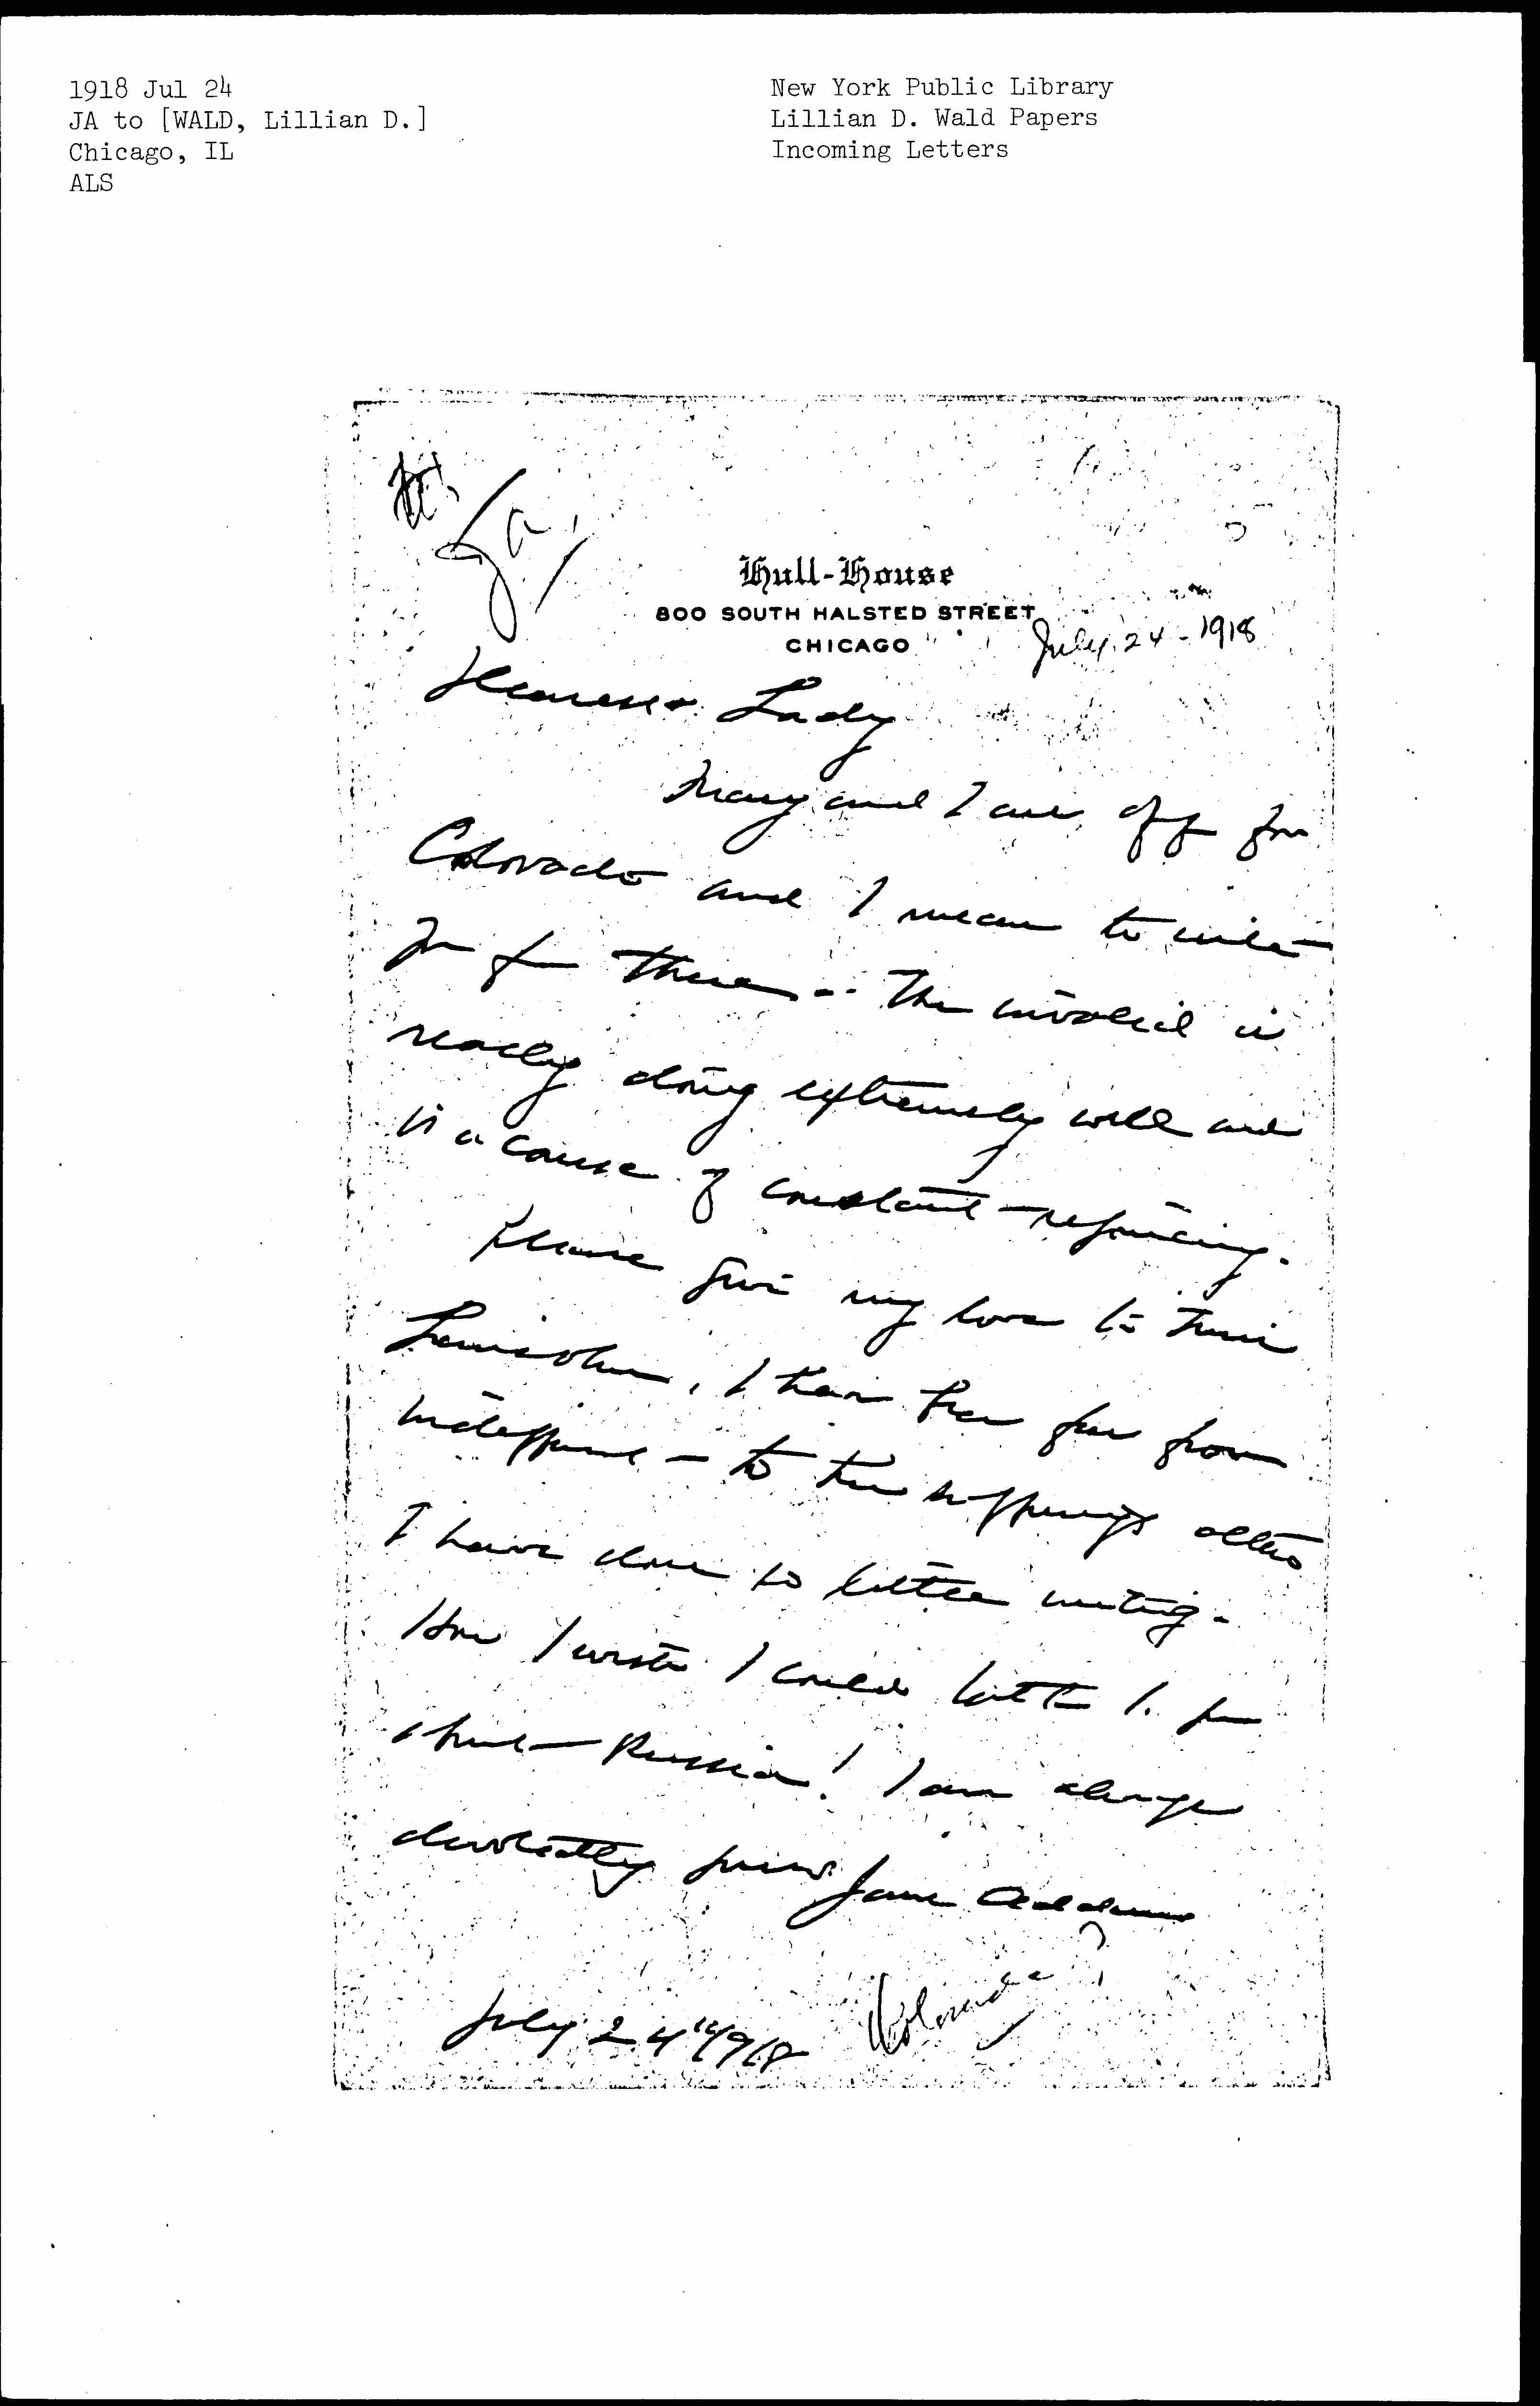 1918 Jul 24
JA to [WALD, Lillian D.]
Chicago, IL
ALS
New York Public Library
Lillian D. Wald Papers
Incoming Letters
Hull-House
800 SOUTH HALSTED STREET
CHICAGO
July 24 - 1918
Dearest Lady
Mary and I are off for
Colorado and I mean to write
you from there -- The invalid is
really doing extremely well and
is a cause of constant rejoicing.
Please give my love to
I have been far from
indifferent - to the sufferings altho
I have done so little writing.
How I wish I could talk to you
about Russia! I am always
devotedly yours Jane Addams
July 24" 1918
Colorado